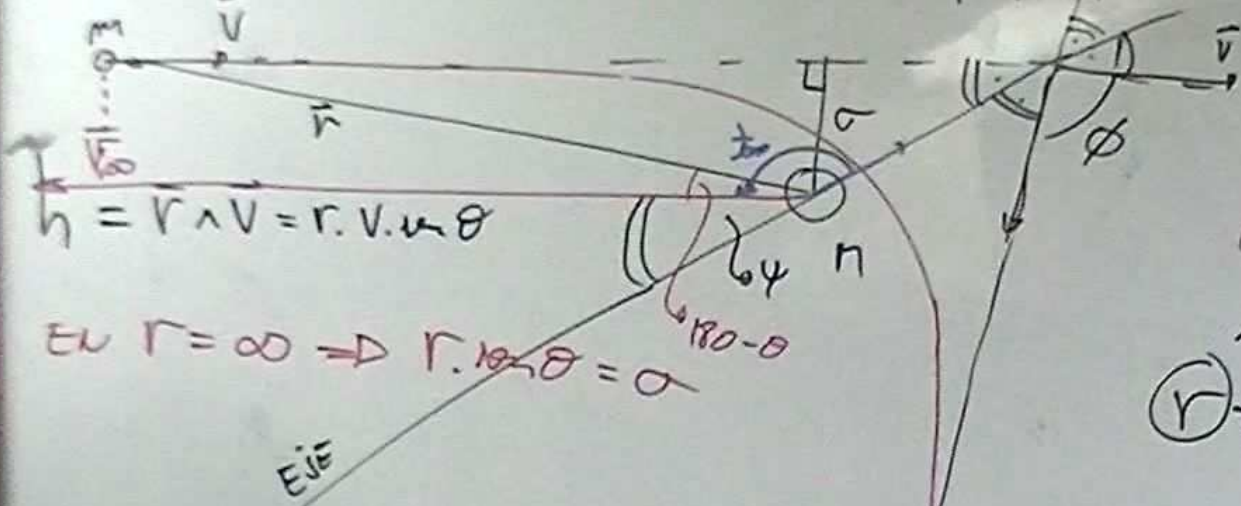 m
V⃗
V⃗
r⃗
σ
ϕ
V⃗∞
h = r ∧ V = r . V . sen θ
ψ
M
180-θ
EN r = ∞ ⇒ r . sen θ = σ
EjE
r